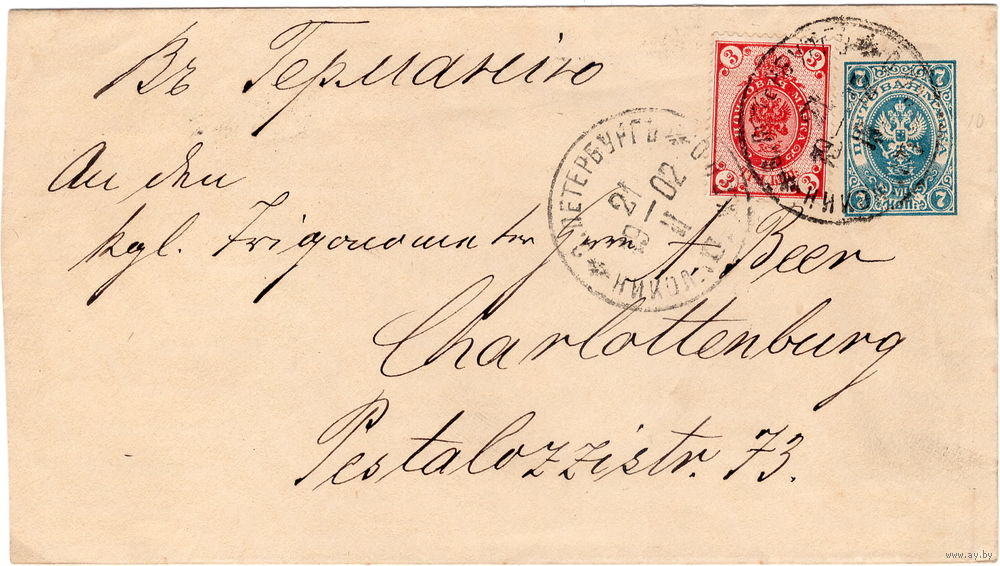 Въ Германію
An den
kgl. Trigonometer Herrn A. Beer
Charlottenburg
Pestalozzistr. 73.
3 3
ПОЧТОВАЯ МАРКА
3 3
7 7
7 КОП. 7
С.ПЕТЕРБУРГЪ
21
VI-02
19
НИКОЛ.
10
www.ay.by